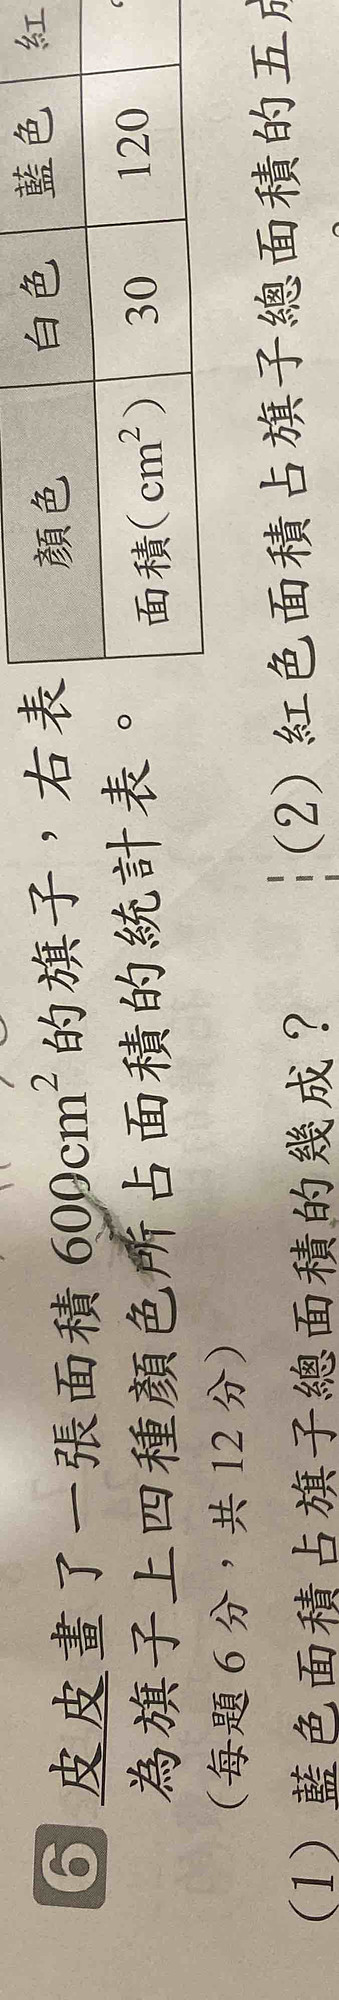 6 皮皮畫了一張面積600cm²的旗子，右表
為旗子上四種顏色所占面積的統計表。
（每題6分，共12分）
顏色 白色 藍色 紅
面積(cm²) 30 120
(1) 藍色面積占旗子總面積的幾成？
(2) 紅色面積占旗子總面積的五成